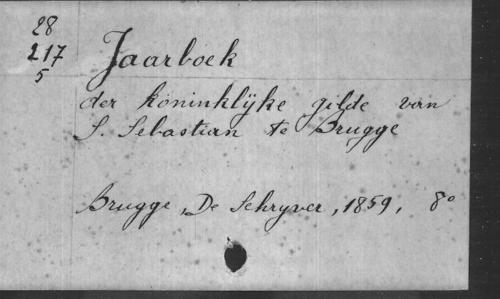 28
217
5
Jaarboek
der koninklijke gilde van
S. Sebastian te Brugge
Brugge, De Schryver, 1859, 8°